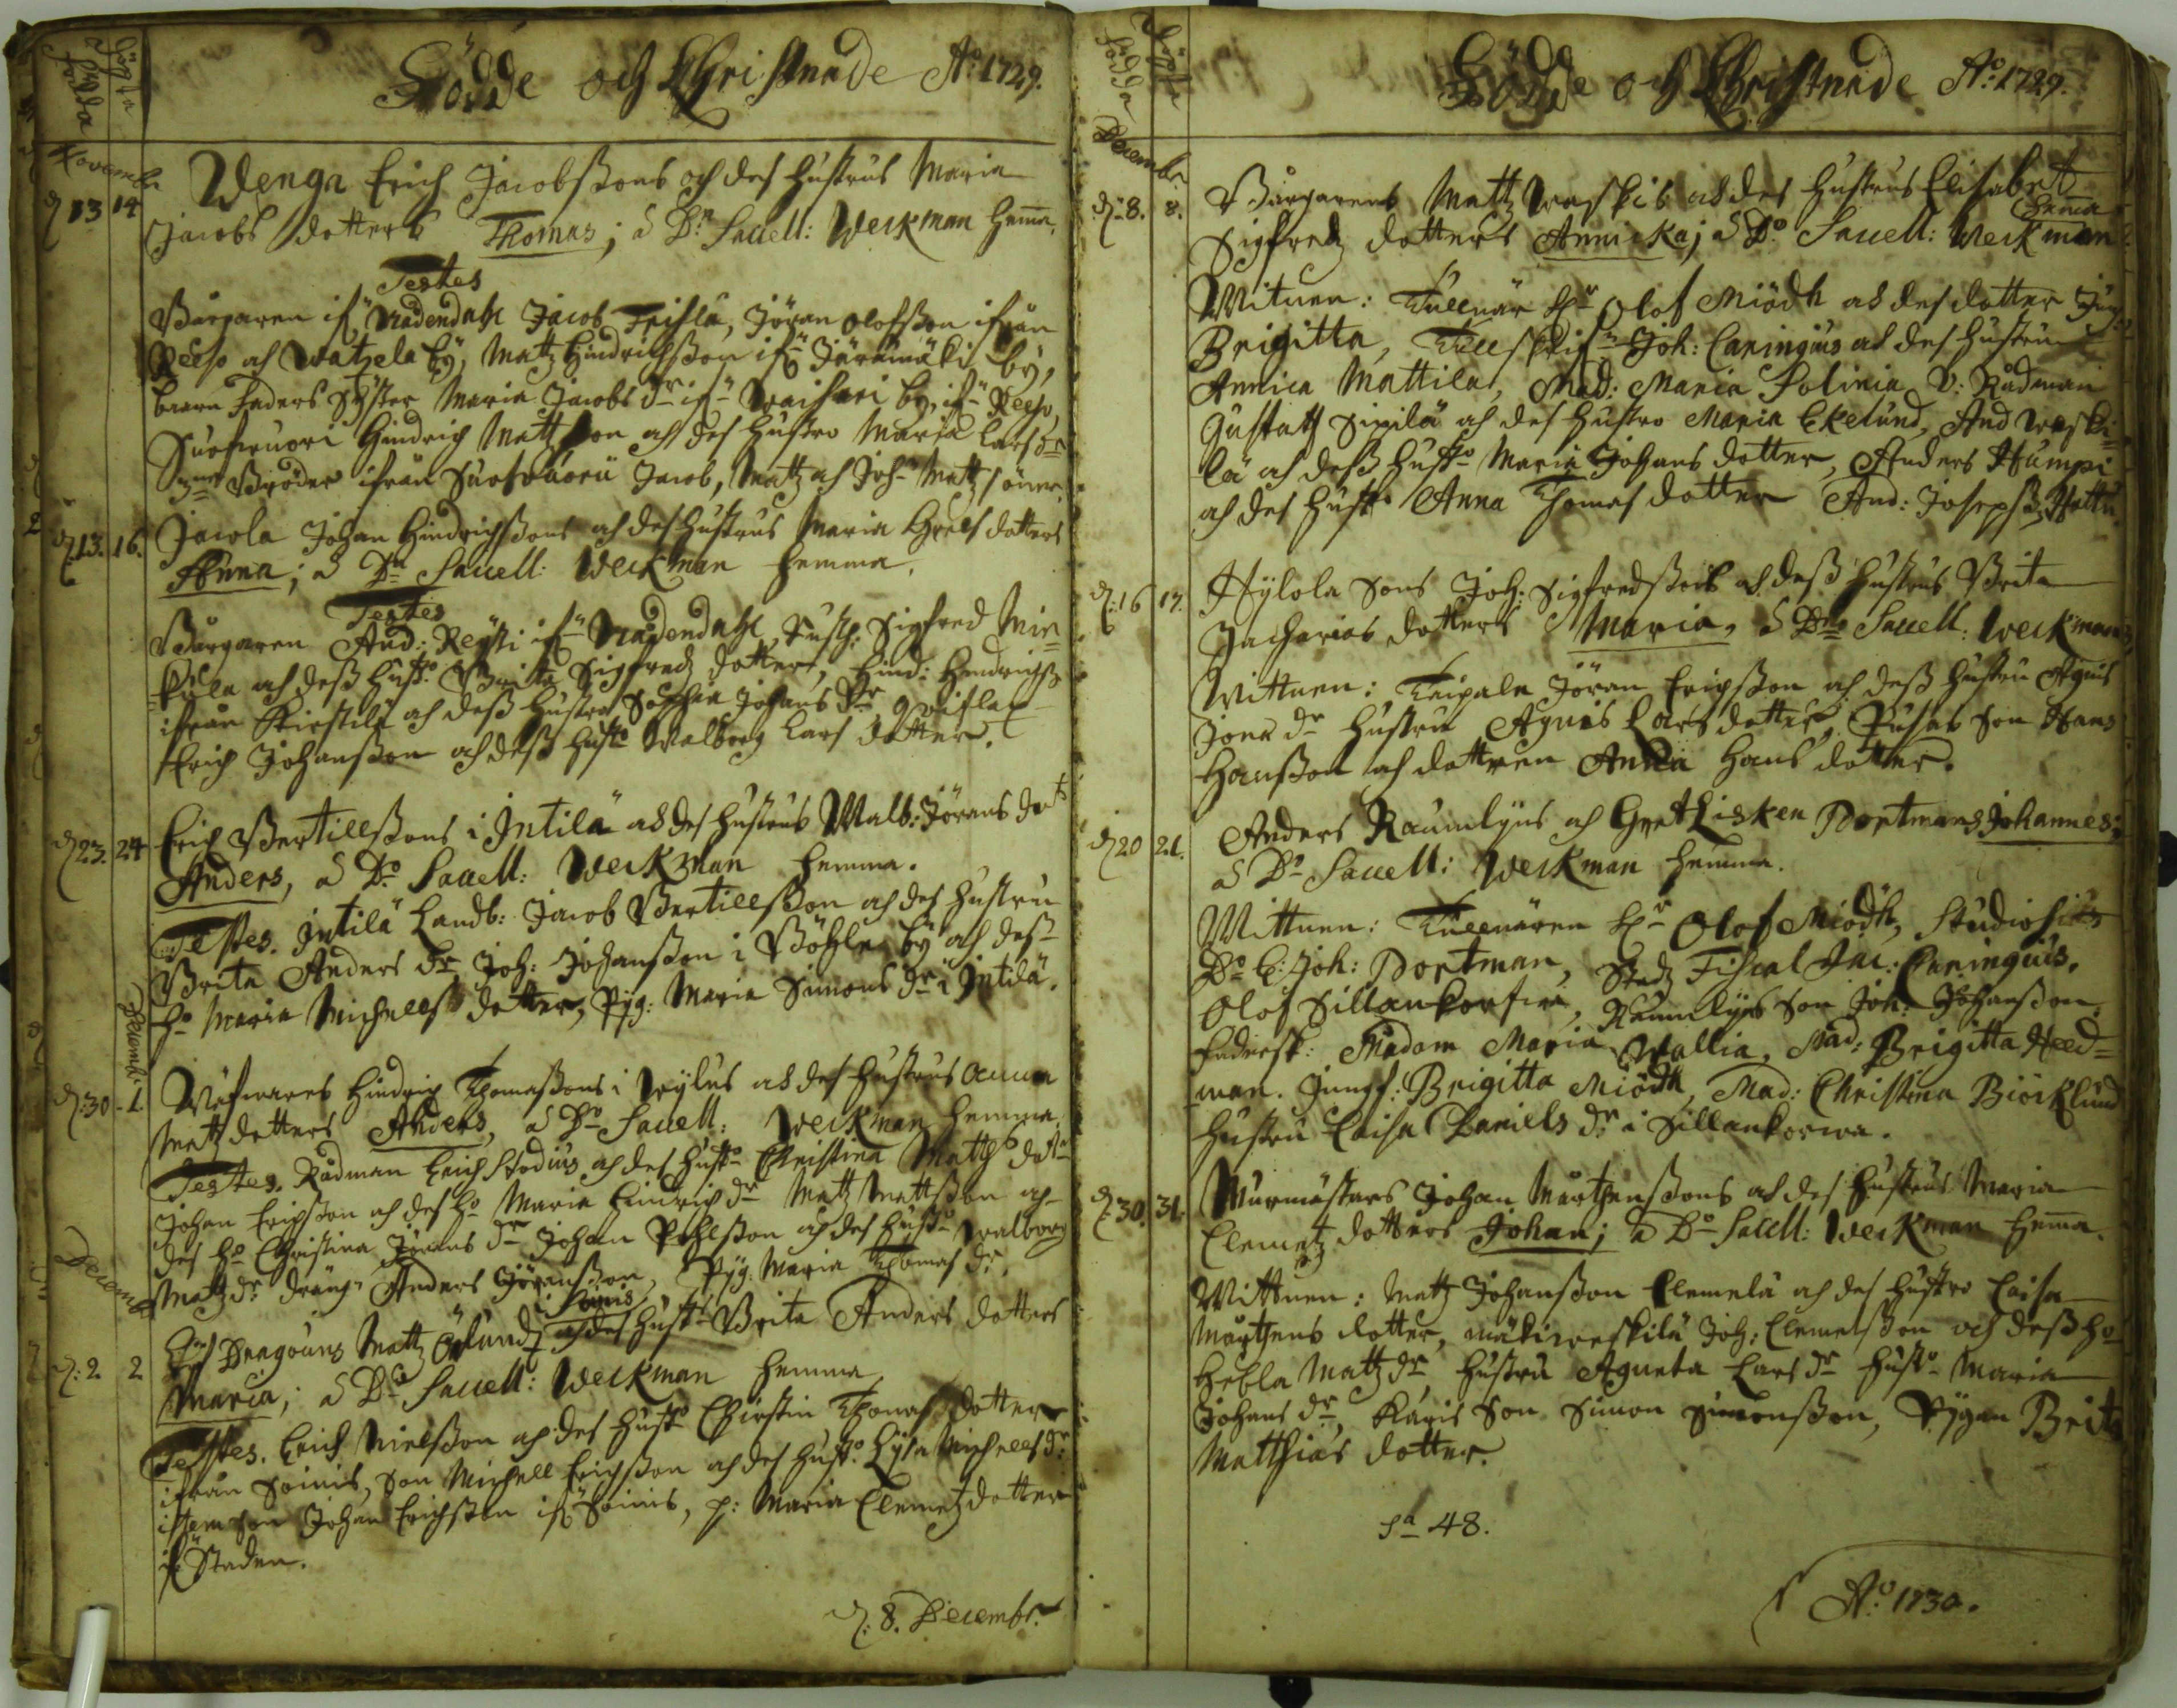 Födde och Christnade Ao 1729.
födda
döpta
Novembr
d 13 14
Wenga Erich Jacobssons och des hustrus Maria
Jacobs dotters Thomas; a Dn Sacell: Weckman hemma.
Testes
Borgaren ifr. Nådendahl Jacob Frisla, Jöran Olofsson ifrån
Reso och Watzela by, Matz Hindrichsson ifr. Järämäki by,
barn faders syster Maria Jacobs dr ifr. Waihari by, ifr. Reso,
Suoswuori Hindrich Matzson och des hustro Maria Lars dr
Bröder ifrån Suoswuori Jacob, Matz och Joh. Matz söner.
d 13. 16.
Jacola Johan Hindrichssons och des hustrus Maria Grels dotters
Anna; a Dn Sacell: Weckman hemma.
Testes
Borgaren And: Reyti ifr. Nådendahl, Sigfred
och dess hust. Brita Sigfreds dotter, Hind: Hendrichs.
ifrån Kirstilä och dess hustro Sophia Johans dr
Erich Johansson och dess husto Walborg Lars dotter.
d 23. 24
Erich Bertillssons i Intilä och des hustrus Walb: Jörans drs
Anders, a Do Sacell: Weckman hemma.
Testes. Intilä Landb: Jacob Bertillsson och des hustru
Brita Anders dr Joh: Johansson i Böhle by och des
ho Maria Michells dotter, Pyg: Maria Simons dr i Intilä.
Decembr.
d: 30 - 1.
Wäfwares Hindrich Thomassons i Nylus och des hustrus Anna
Matz dotters Anders, a Do Sacell: Weckman hemma.
Testes. Rådman Erich Stodius och des husto Christina Matts dotr
Johan Erichsson och des ho Maria Hindrich dr Matz Mattsson och
des ho Christina Jörans dr Johan Påhlsson och des husto Walborg
Matz dr dräng Anders Jöransson, Pyg. Maria Thomas dr.
Decemb
d: 2. 2
Dragouns Matz Öslunds i Soinis och des hust. Brita Anders dotters
Maria; a Do Sacell: Weckman hemma
Testes. Erich Nielsson och des husto Chirstin Thomas dotter
ifrån Soinis, son Michell Erichsson och des husto Lysa Michells dr
item son Johan Erichsson ifr Soinis, p: Maria Clemetz dotter
ifr Staden.
d: 8. Decembr.
Födde och Christnade Ao: 1729.
födda
döpte
Decembr.
d. 8. 8.
Borgarens Matz Waskis och des hustrus Elisabet
Sigfredz dotters Annicka; a Do. Sacell: Weckman hemma
Witnen: Tullnär Hr Olof Miödh och des dotter Jungf:
Brigitta, Tullskrifn. Joh: Caringius och des hustru
Annica Mattila, Mad: Maria Polinia V: Rådman
Gustaff Sipilä och des hustro Maria Ekelund, And Waski=
lä och dess husto Maria Johans dotter, Anders Humpi
och des husto Anna Thomas dotter And: Josephs. Hattu.
d: 16 17.
Hylola Sons Joh: Sigfredssons och dess hustrus Brita
Zacharias dotters Maria, a Dno Sacell: Weckman
Wittnen: Taipale Jöran Erichsson och dess hustru Agnis
Jons dr hustru Agnis Lars dotter, Pusas son Hans
Hansson och dottren Anna Hans dotter.
d 20 21.
Anders Raumlyns och Gret Lisken Portmans Johannes;
a Do Sacell: Weckman hemma.
Wittnen: Tullnären Hr Olof Miödh, Studiosius
Do E: Joh: Portman, Stads Fiscal Jac: Caringius.
Olof Sillankorfwa, Raumlyns son Joh: Johansson.
Madam Maria Wallia, Mad: Brigitta Heed=
man. Jungf: Brigitta Miödh, Mad: Christina Biörklund
Hustru Caisa Daniels dr i Sillankorwa.
d 30. 31.
Murmästars Johan Mårthenssons och des hustrus Maria
Clemetz dotters Johan; a Do Sacell: Weckman hemma.
Wittnen: Matz Johansson Clemelä och des hustro Caisa
Mårthens dotter, Mäkiwaskilä Joh: Clemetsson och dess ho
Hebla Matz dr hustru Agneta Lars dr husto Maria
Johans dr, Karis son Simon Simonsson, Pygan Brita
Matthias dotter.
Sa 48.
Ao: 1730.